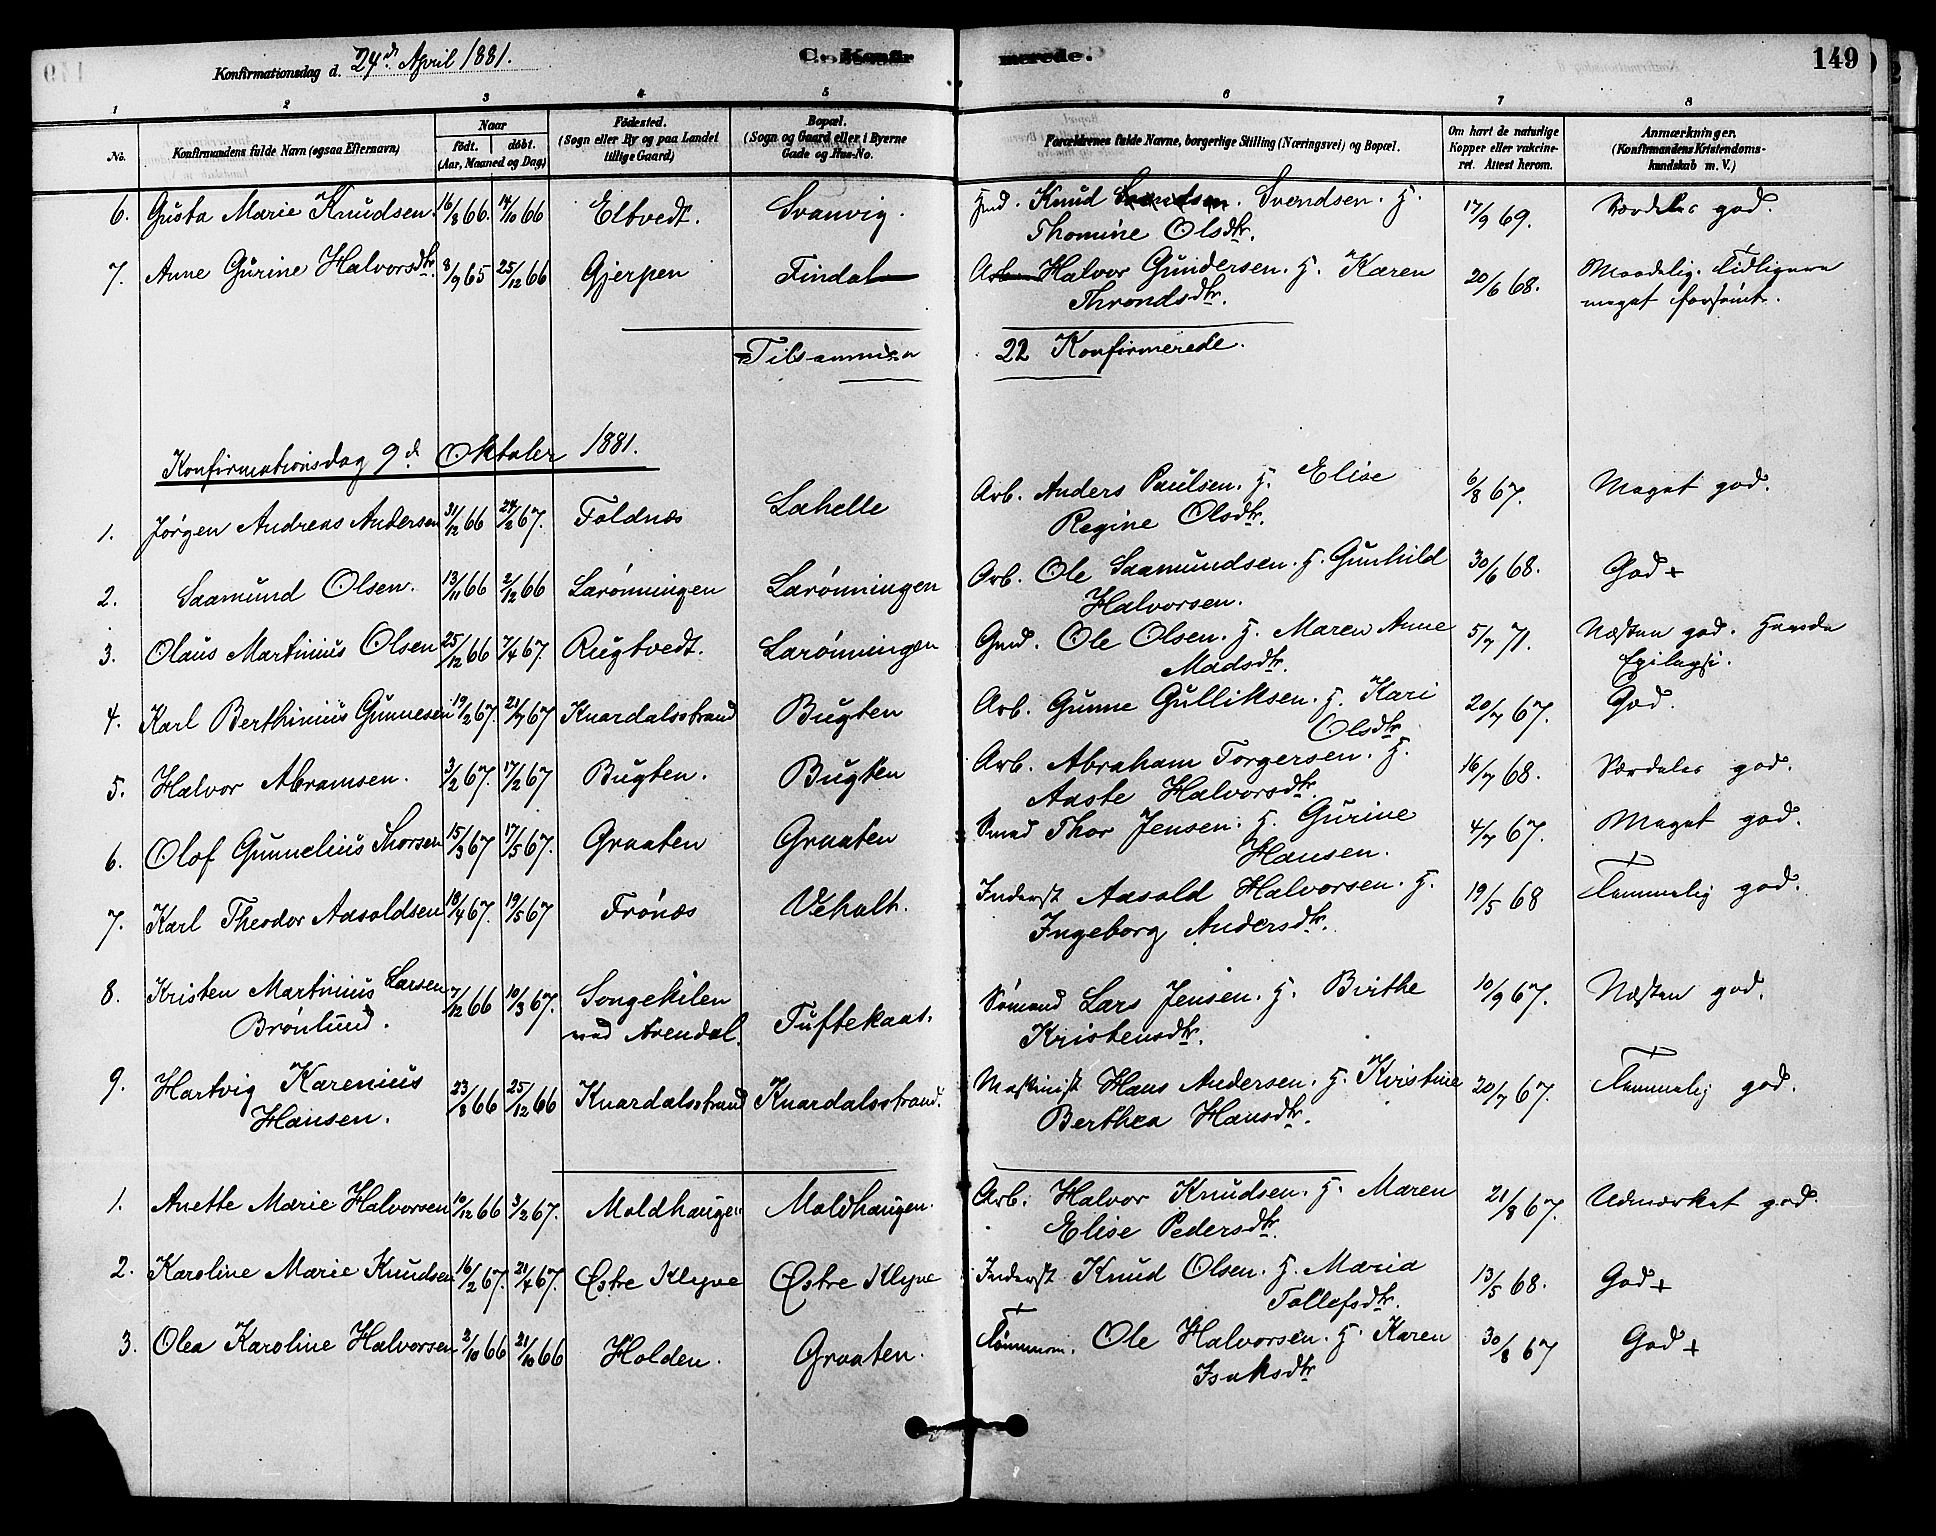 Konfirmationsdag d. 24de April 1881.
C. Konfirmerede.
149
1 2 3 4 5 6 7 8
No.
Konfirmandens fulde Navn (ogsaa Efternavn)
Naar
født. døbt.
(Aar, Maaned og Dag)
Fødested.
(Sogn eller By og paa Landet
tillige Gaard)
Bopæl.
(Sogn og Gaard eller i Byerne
Gade og Hus-No.
Forældrenes fulde Navne, borgerlige Stilling (Næringsvei) og Bopæl.
Om havt de naturlige
Kopper eller vakcine-
ret. Attest herom.
Anmærkninger.
(Konfirmandens Kristendoms-
kundskab m. V.)
6. Gusta Marie Knudsen. 16/8 66. 14/10 66 Eltvedt. Svanvig. Hmd. Knud Svendsen. H. 17/9 69. Særdeles god.
Thomine Olsdtr.
7. Anne Gurine Halvorsdtr. 8/9 65 25/12 66 Gjerpen Findal Arb. Halvor Gundersen. H. Karen 20/6 68. Maadelig. Tidligere
Throndsdtr. meget forsømt.
Tilsammen 22 Konfirmerede.
Konfirmationsdag 9d Oktober 1881.
1. Jørgen Andreas Andersen 31/12 66 24/2 67. Foldnæs Lahelle Arb. Anders Paulsen. H. Elise 6/8 67. Meget god.
Regine Olsdtr.
2. Saamund Olsen. 13/11 66 2/12 66 Larønningen Larønningen Arb. Ole Saamundsen. H. Gunhild 30/6 68. God +
Halvorsen.
3. Olaus Martinius Olsen 25/12 66 7/4 67. Rugtvedt. Larønningen Gmd. Ole Olsen. H. Maren Anne 5/7 71. Næsten god. Havde
Madsdtr. Epilepsi.
4. Karl Berthinius Gunnesen 19/2 67. 21/7 67 Knardalsstrand Bugten Arb. Gunne Gulliksen. H. Kari 20/7 67. God.
Olsdtr.
5. Halvor Abramsen. 3/2 67. 17/2 67 Bugten. Bugten Arb. Abraham Torgersen. H. 16/7 68. Særdeles god.
Aaste Halvorsdtr.
6. Olof Gunnelius Thorsen 15/3 67 17/5 67. Graaten Graaten Smed Thor Jensen. H. Gurine 4/7 67. Meget god.
Hansen.
7. Karl Theodor Aasoldsen 18/4 67. 19/5 67 Frønæs Veholt. Inderst Aasold Halvorsen. H. 19/5 68 Temmelig god.
Ingeborg Andersdtr.
8. Kristen Martinius Larsen 7/12 66 10/3 67. Songekilen Tuftekaas. Sømand Lars Jensen. H. Birthe 10/9 67. Næsten god.
Brønlund. ved Arendal. Kristensdtr.
9. Hartvig Karenius 23/8 66 25/12 66 Knardalsstrand Knardalsstrand. Maskinist Hans Andersen. H. Kristine 20/7 67. Temmelig god.
Hansen. Berthea Hansdtr.
1. Anette Marie Halvorsen 10/12 66 3/2 67. Moldhaugen Moldhaugen. Arb. Halvor Knudsen. H. Maren 21/8 67. Udmærket god.
Elise Pedersdtr.
2. Karoline Marie Knudsen 16/2 67. 21/4 67. Østre Klyve Østre Klyve Inderst Knud Olsen. H. Maria 13/5 68. God +
Tollefsdtr.
3. Olea Karoline Halvorsen 2/10 66 21/10 66 Holden. Graaten. Tømmerm. Ole Halvorsen. H. Karen 30/8 67 God +
Isaksdtr.